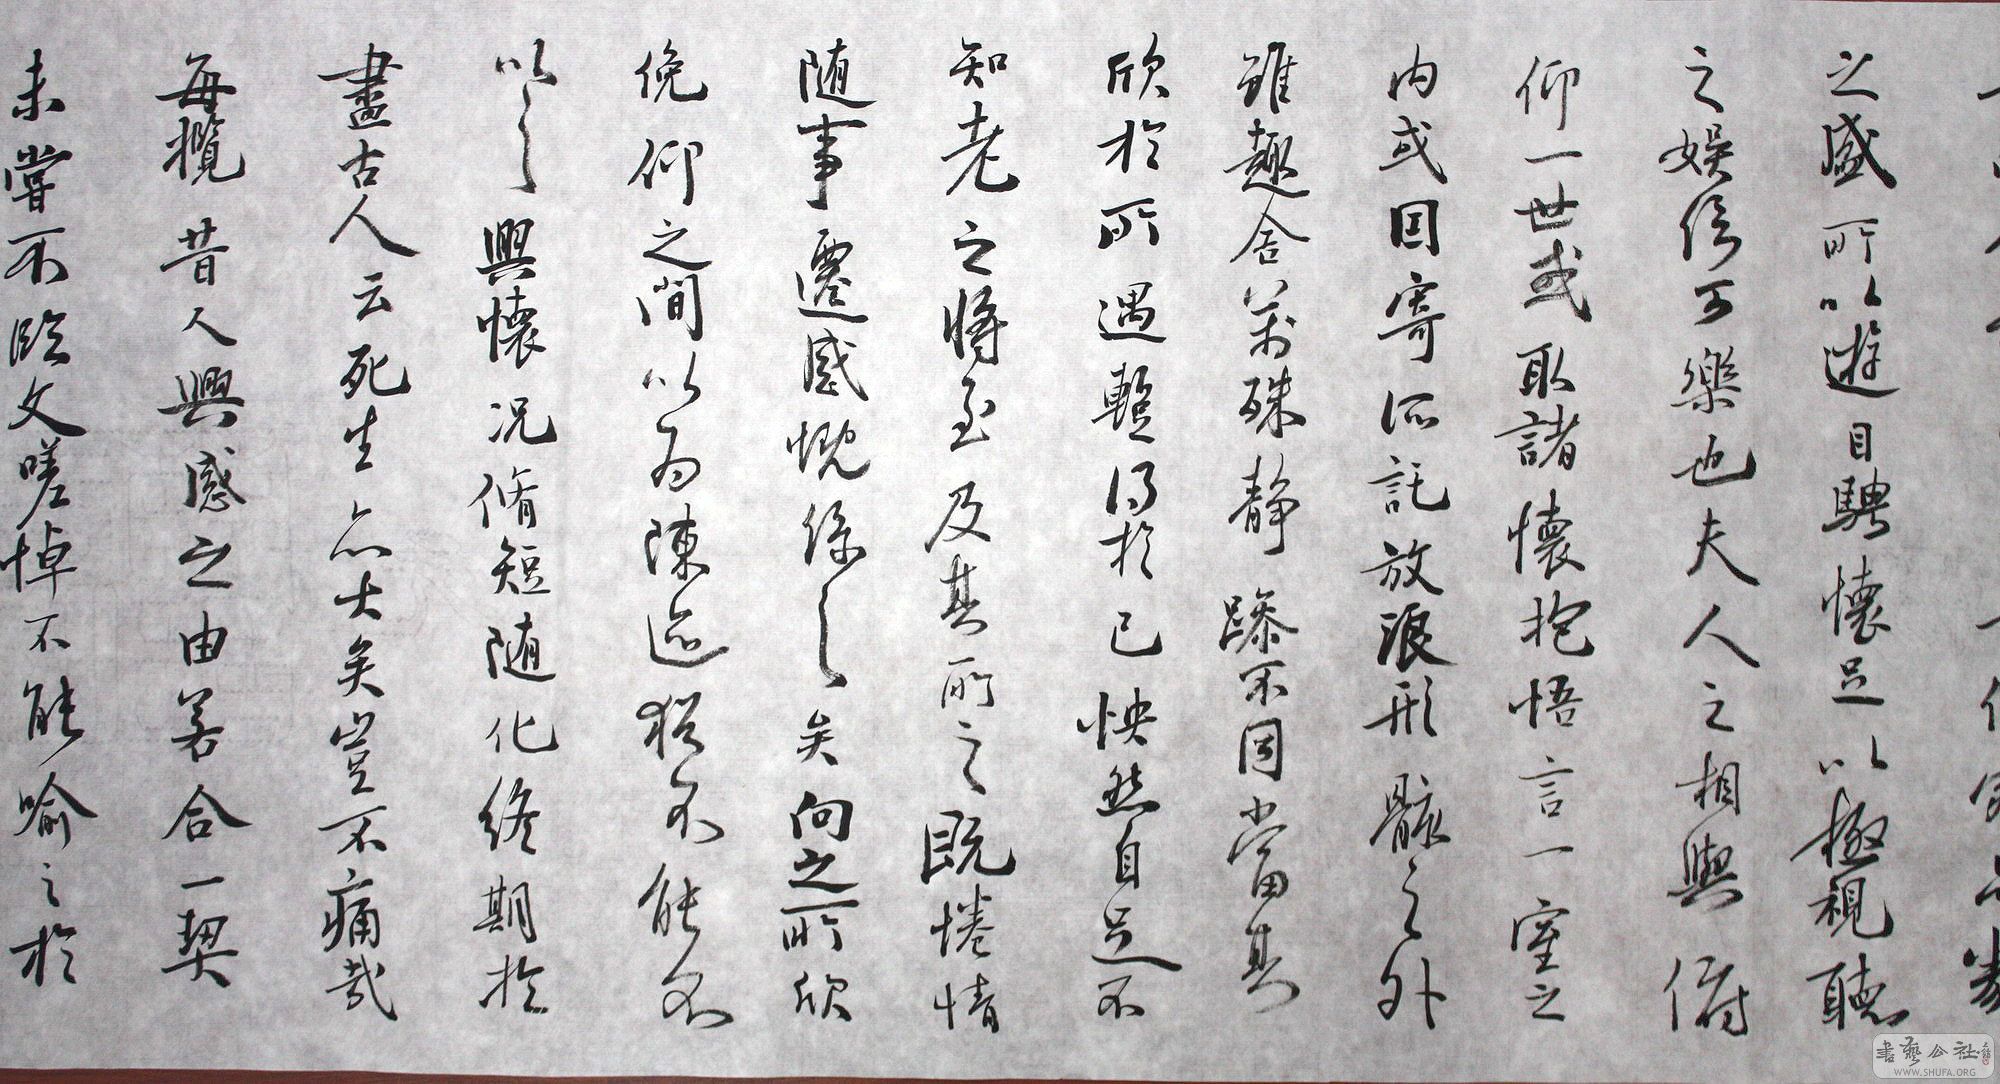 之盛所以遊目騁懷足以極視聽
之娛信可樂也夫人之相與俯
仰一世或取諸懷抱悟言一室之
内或因寄所託放浪形骸之外
雖趣舍萬殊静躁不同當其
欣於所遇暫得於己怏然自足不
知老之將至及其所之既惓情
随事遷感慨係之矣向之所欣
俛仰之間以為陳迹猶不能不
以之興懷况脩短随化終期於
盡古人云死生亦大矣豈不痛哉
每攬昔人興感之由若合一契
未嘗不臨文嗟悼不能喻之於
書藝公社
WWW.SHUFA.ORG